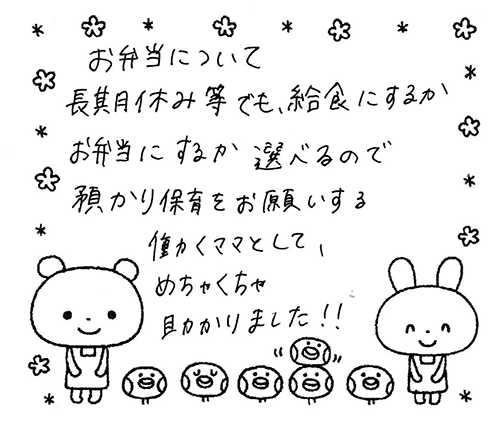 お弁当について
長期休み等でも、給食にするか
お弁当にするか選べるので
預かり保育をお願いする
働くママとして、
めちゃくちゃ
助かりました!!